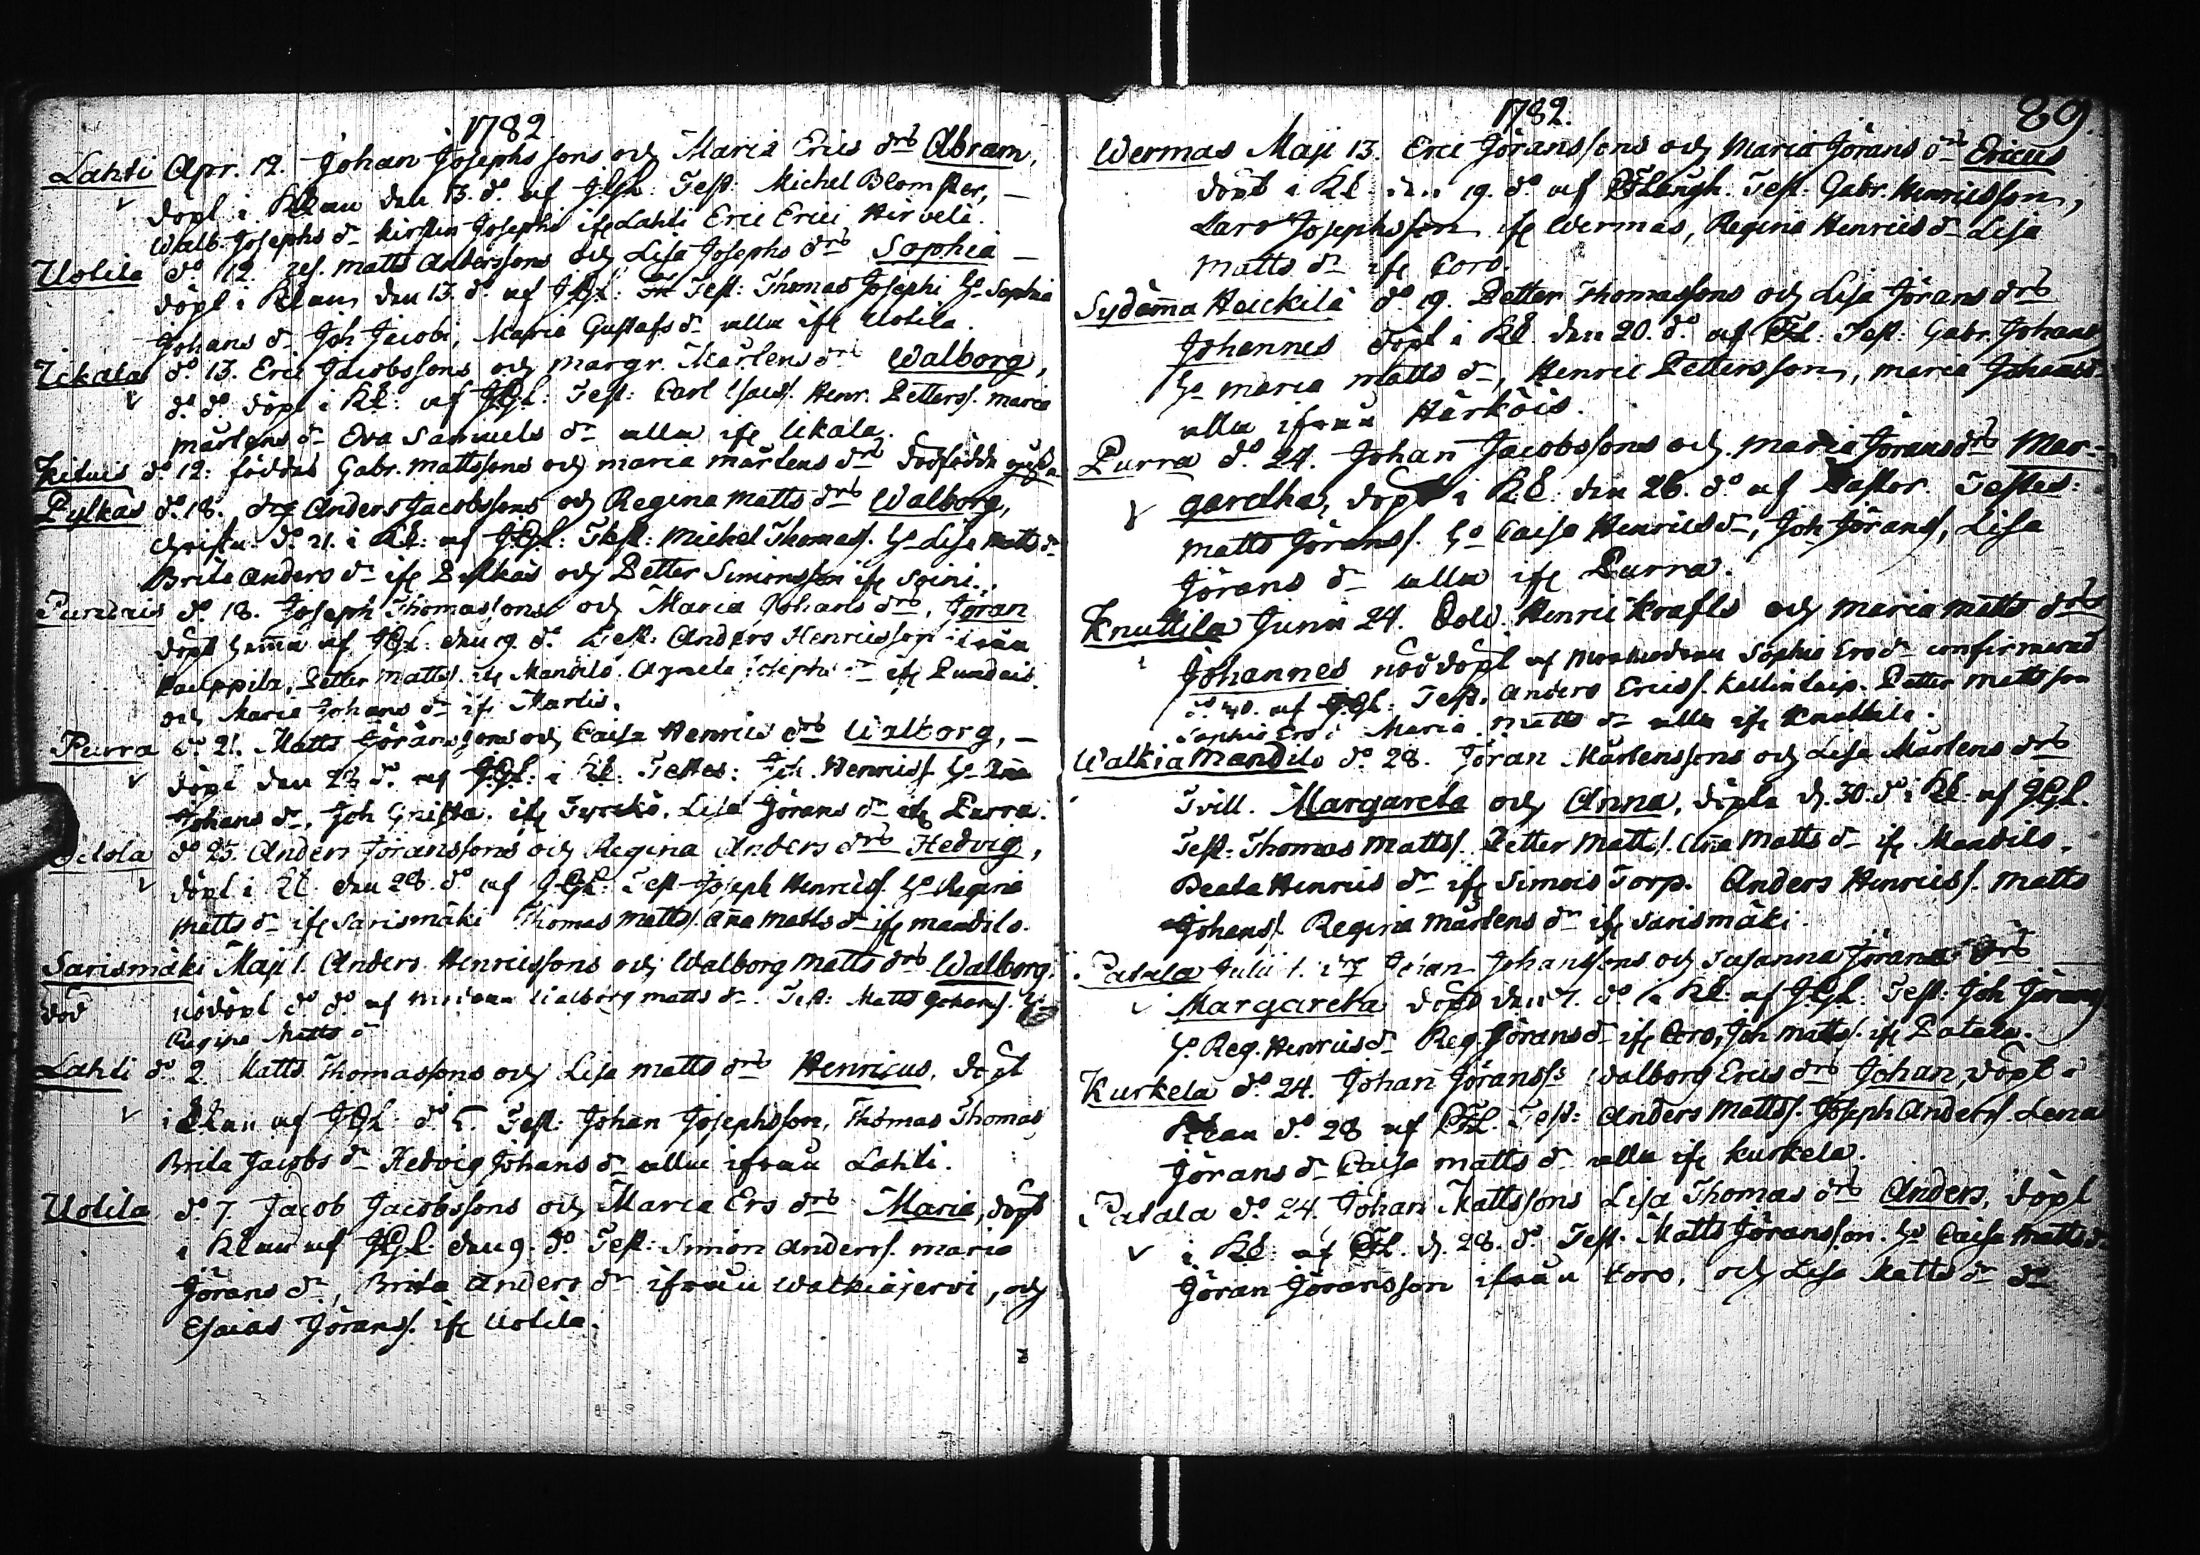 1782.
Lahti Apr. 12. Johan Josephssons och Maria Erics drs Abram,
döpt i Klkan den 13. do af JGL: Test: Michel Blomster, —
Walb. Josephs dr Kirstin Josephs ifr Lahti Eric Erici Hirvelä.
Uotila do 12. Matts Anderssons och Lisa Josephs drs Sophia —
döpt i Klkan den 13. do af JGL: Test: Thomas Josephi Ho Sophia
Johans dr Joh Jacobi, Maria Gustafs dr alla ifr Uotila.
Ikala do 13. Eric Jacobssons och Margr. Mårtens drs Walborg,
do do döpt i Kl: af JGL: Test: Carl Isacs. Henr. Petters. Maria
Mårtens dr Eva Samuels dr alla ifr Ikala.
do 12. föddes Gabr. Mattssons och Maria Mårtens drs dödfödda
Pylkäs do 18. Anders Jacobssons och Regina Matts drs Walborg,
do 21. i Kl: af JGL: Test: Michel Thomas. Ho Lisa Matts dr
Brita Anders dr ifr Pylkäs och Petter Simonsson ifr Soini.
do 18. Joseph Thomassons och Maria Johans drs, Jöran
döpt hemma af JGL: den 19. do Test: Anders Henricsson ifrån
Petter Matts. ifr Mandilo. Agneta Josephs dr ifr
och Maria Johans dr ifr Martis.
Purra do 21. Matts Jöranssons och Caisa Henrics drs Walborg, —
döpt den 23 do af JGL: i Kl: Testes: Joh. Henrics. Ho Anna
Johans dr, Joh Gnista. ifr Lisa Jörans dr ifr Purra.
do 25. Anders Jöranssons och Regina Anders drs Hedvig,
döpt i Kl. den 28. do af JGL: Test Joseph Henrics. Ho Regina
Matts dr ifr Sarismäki Thomas Matts. Anna Matts dr ifr Mandilo.
Sarismäki Maji 1. Anders Henricssons och Walborg Matts drs Walborg.
död nödöpt do do af Walborg Matts dr. Test: Matts Johans.
Regina Matts dr
Lahti do 2. Matts Thomassons och Lisa Matts drs Henricus, döpt
i Klkan af JGL: do 5. Test: Johan Josephsson, Thomas Thomas
Brita Jacobs dr Hedvig Johans dr alla ifrån Lahti.
Uotila do 7 Jacob Jacobssons och Maria Ers drs Maria, döpt
i Klkan af JGL: den 9. do Test: Simon Anders. Maria
Jörans dr, Brita Anders dr ifrån Walkiäjervi, och
Esaias Jörans. ifr Uotila.
1782. 89.
Wermas Maji 13. Eric Jöranssons och Maria Jörans drs Ericus
döpt i Kl. den 19. do af Test: Gabr. Henricsson,
Lars Josephsson ifr Wermas, Regina Henrics dr Lisa
Matts dr ifr Toro.
Sydänma Heickilä do 19. Petter Thomassons och Lisa Jörans drs
Johannes döpt i Kl. den 20. do af Test: Gabr. Johans
Ho Maria Matts dr, Henric Pettersson, Maria Johans dr
alla ifrån Härköis.
Purra do 24. Johan Jacobssons och Maria Jörans drs Mar-
garetha, döpt i Kl. den 26. do af Pastor. Testes:
Matts Jörans. Ho Caisa Henrics dr, Joh Jörans, Lisa
Jörans dr alla ifr Purra.
Knuttila Junii 24. Henric Krafts och Maria Matts drs
Johannes nöddöpt af Sophia Ers dr confirmerad
af JGL: Test. Anders Erics. Petter Mattsson
Sophia Ers, Maria Matts dr alla ifr Knuttila.
Walkia Mandilo do 28. Jöran Mårtenssons och Lisa Mårtens drs
Tvill. Margareta och Anna, döpta d. 30. do i Kl. af JGL.
Test: Thomas Matts. Petter Matts. Anna Matts dr ifr Mandilo.
Beata Henrics dr ifr Simois Torp. Anders Henrics. Matts
Johans. Regina Mårtens dr ifr Sarismäki.
Patala Julii 1. Johan Johanssons och Susanna Jörans drs
Margareta döpt den 7. do i Kl: af JGL: Test: Joh Jörans
Ho. Reg. Henrics dr Reg. Jörans dr ifr Toro, Joh Matts. ifr Patala.
Kurkela do 24. Johan Jöranss: Walborg Erics drs Johan, döpt i
Klkan do 28 af Test: Anders Matts. Joseph Anders. Lena
Jörans dr Caisa Matts dr alla ifr Kurkela.
Patala do 24. Johan Mattssons Lisa Thomas drs Anders, döpt
i Kl: af d. 28. do Test. Matts Jöransson. Ho Caisa Matts dr
Jöran Jöransson ifrån Toro, och Lisa Matts dr do